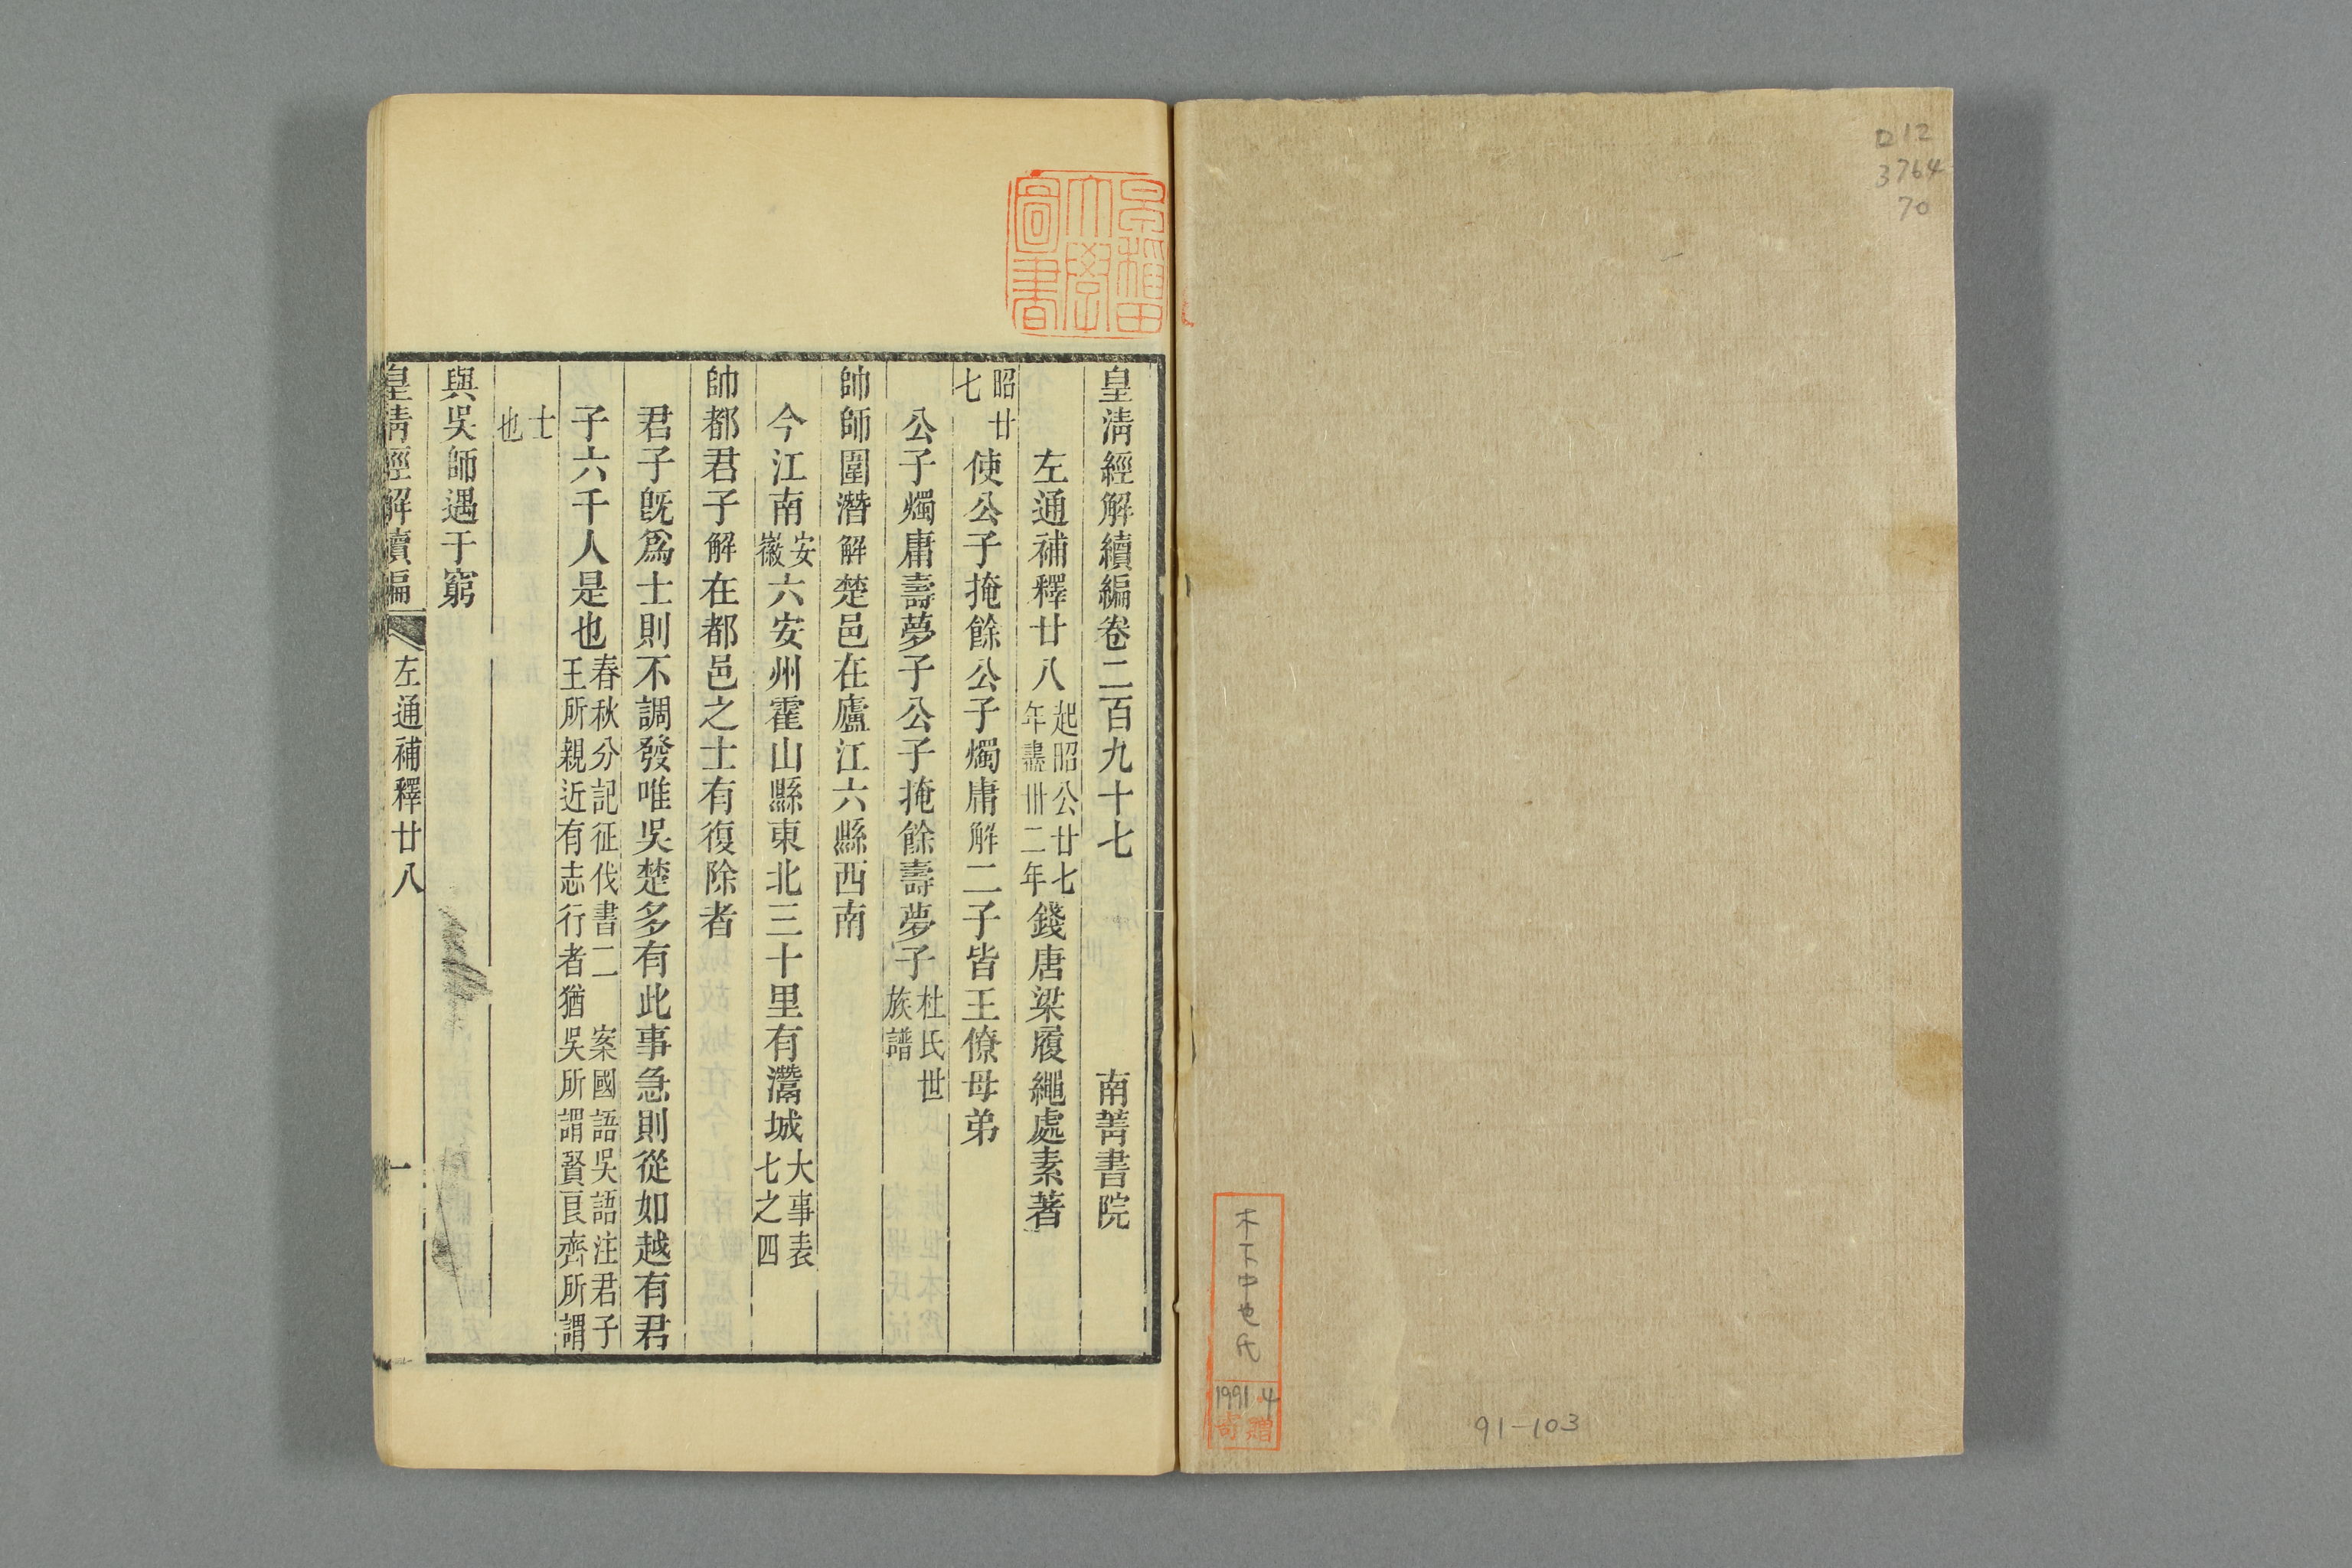 ロ12
3764
70
木下中也氏
1991.4
寄贈
91-103
早稲田
大學
圖書
皇清經解續編卷二百九十七 南菁書院
左通補釋廿八 起昭公廿七年盡卅二年 錢唐梁履繩處素著
昭廿七 使公子掩餘公子燭庸解二子皆王僚母弟
公子燭庸壽夢子公子掩餘壽夢子 杜氏世族譜
帥師圍潛解楚邑在廬江六縣西南
今江南 安徽 六安州霍山縣東北三十里有灊城 大事表七之四
帥都君子解在都邑之士有復除者
君子旣爲士則不調發唯吳楚多有此事急則從如越有君
子六千人是也 春秋分記征伐書二 案國語吳語注君子王所親近有志行者猶吳所謂賢良齊所謂
士也
與吳師遇于窮
皇清經解續編 左通補釋廿八 一